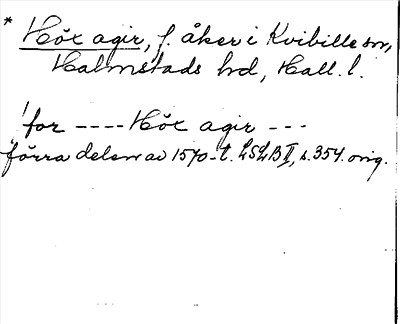 * Höx agir, f. åker i Kvibille sn,
Halmstads hd, Hall. l.
! for ---- Höx agir ---
förra delen av 1570-t. LSLB II, s. 354. orig.